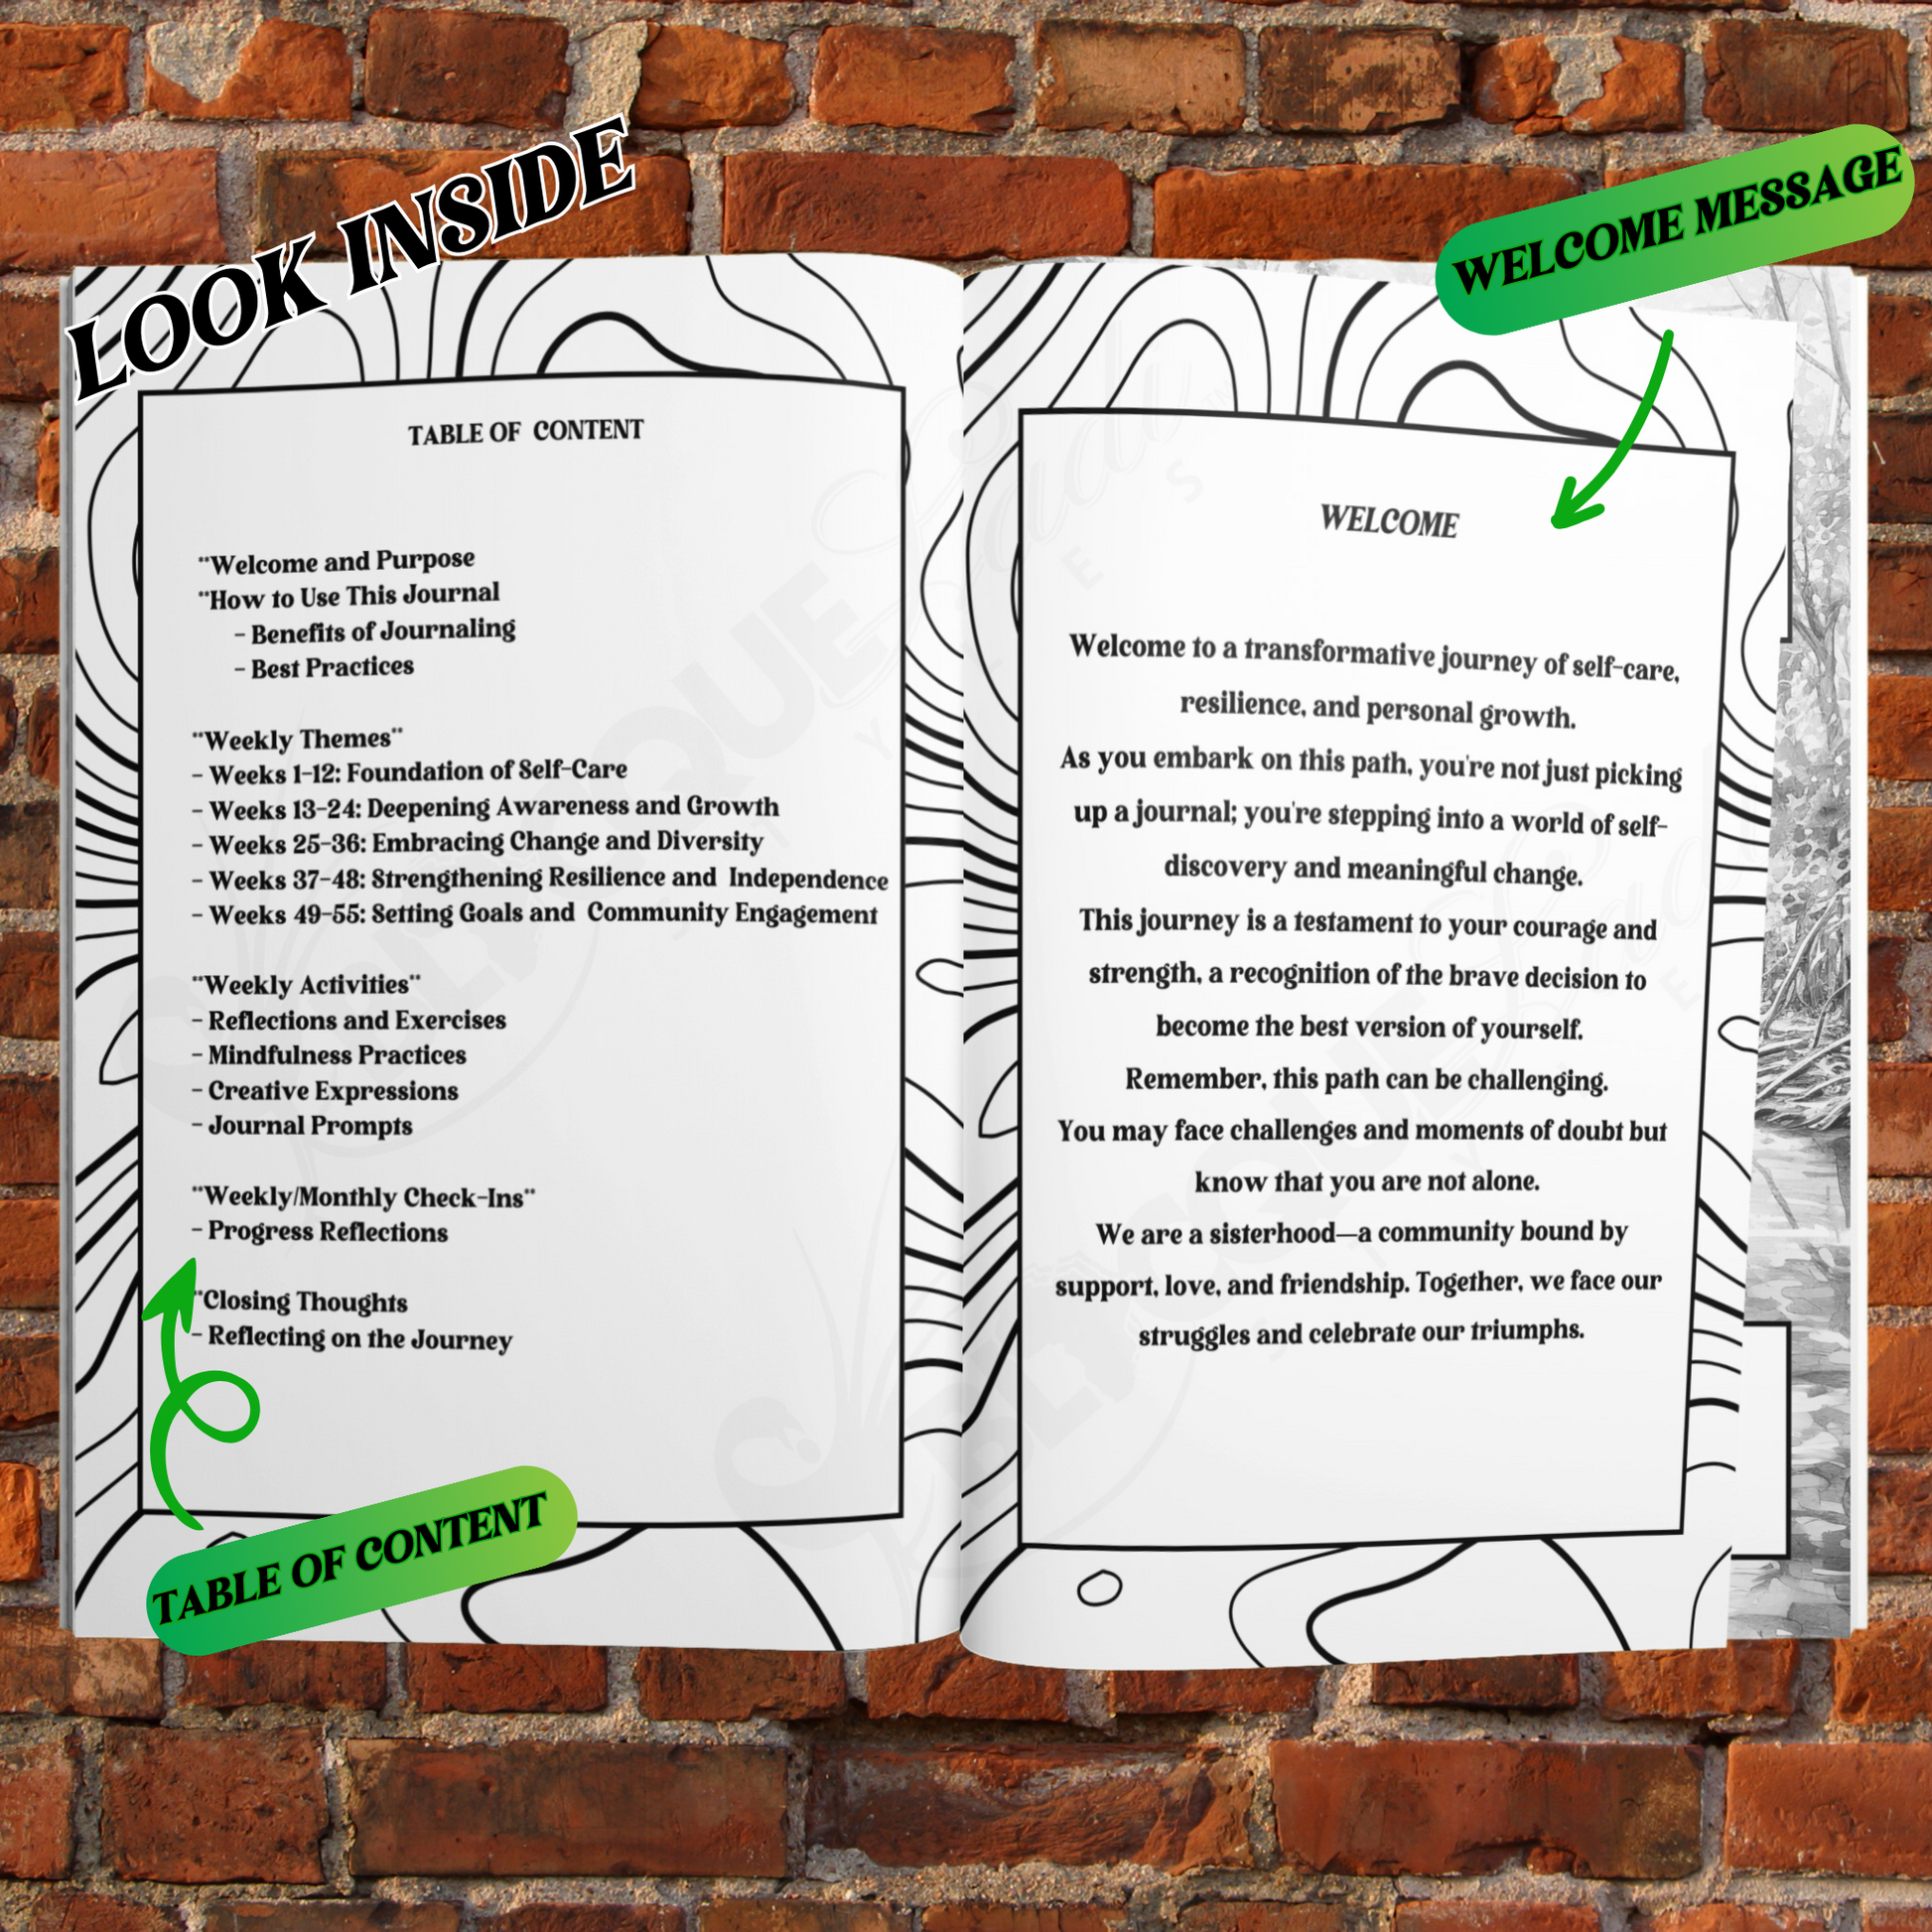 LOOK INSIDE
WELCOME MESSAGE
TABLE OF CONTENT
**Welcome and Purpose
**How to Use This Journal
- Benefits of Journaling
- Best Practices
**Weekly Themes**
- Weeks 1-12: Foundation of Self-Care
- Weeks 13-24: Deepening Awareness and Growth
- Weeks 25-36: Embracing Change and Diversity
- Weeks 37-48: Strengthening Resilience and Independence
- Weeks 49-55: Setting Goals and Community Engagement
**Weekly Activities**
- Reflections and Exercises
- Mindfulness Practices
- Creative Expressions
- Journal Prompts
**Weekly/Monthly Check-Ins**
- Progress Reflections
**Closing Thoughts
- Reflecting on the Journey
TABLE OF CONTENT
WELCOME
Welcome to a transformative journey of self-care,
resilience, and personal growth.
As you embark on this path, you're not just picking
up a journal; you're stepping into a world of self-
discovery and meaningful change.
This journey is a testament to your courage and
strength, a recognition of the brave decision to
become the best version of yourself.
Remember, this path can be challenging.
You may face challenges and moments of doubt but
know that you are not alone.
We are a sisterhood—a community bound by
support, love, and friendship. Together, we face our
struggles and celebrate our triumphs.